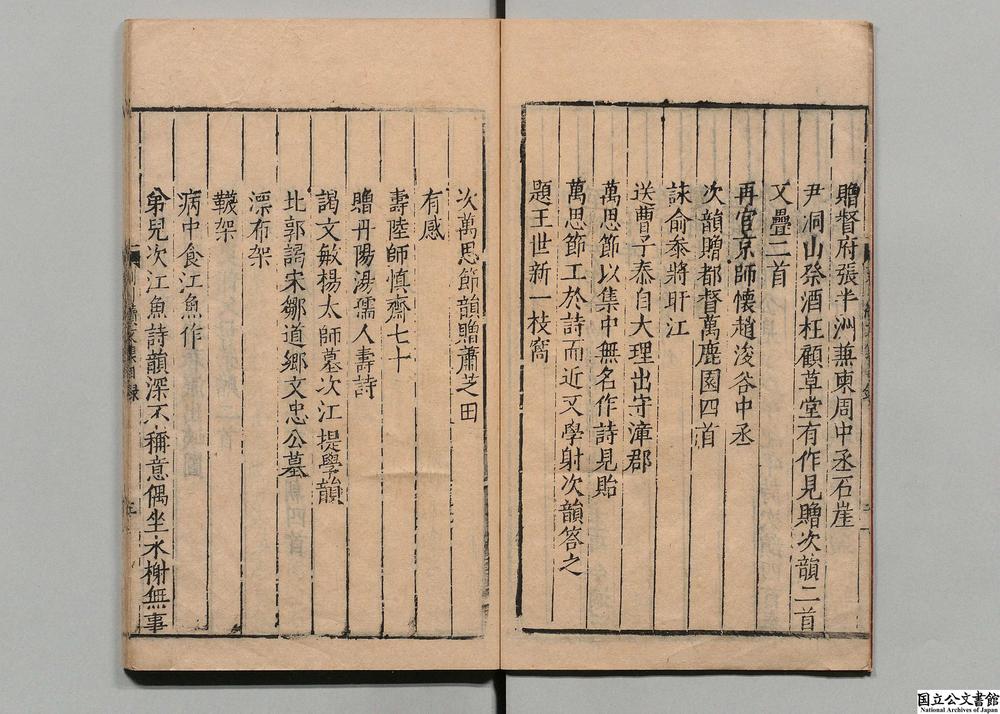 贈督府張半洲兼柬周中丞石崖
尹洞山祭酒枉顧草堂有作見贈次韻二首
又疊二首
再官京師懷趙浚谷中丞
次韻贈都督萬鹿園四首
誄俞泰將盱江
送曹子泰自大理出守漳郡
萬思節以集中無名作詩見貽
萬思節工於詩而近又學射次韻答之
題王世新一枝窩
次萬思節韻贈蕭芝田
有感
壽陸師慎齋七十
贈丹陽湯孺人壽詩
謁文敏楊太師墓次江提學韻
北郭謁宋鄒道鄉文忠公墓
漂布架
韈架
病中食江魚作
弟兒次江魚詩韻深不稱意偶坐水榭無事
国立公文書館
National Archives of Japan